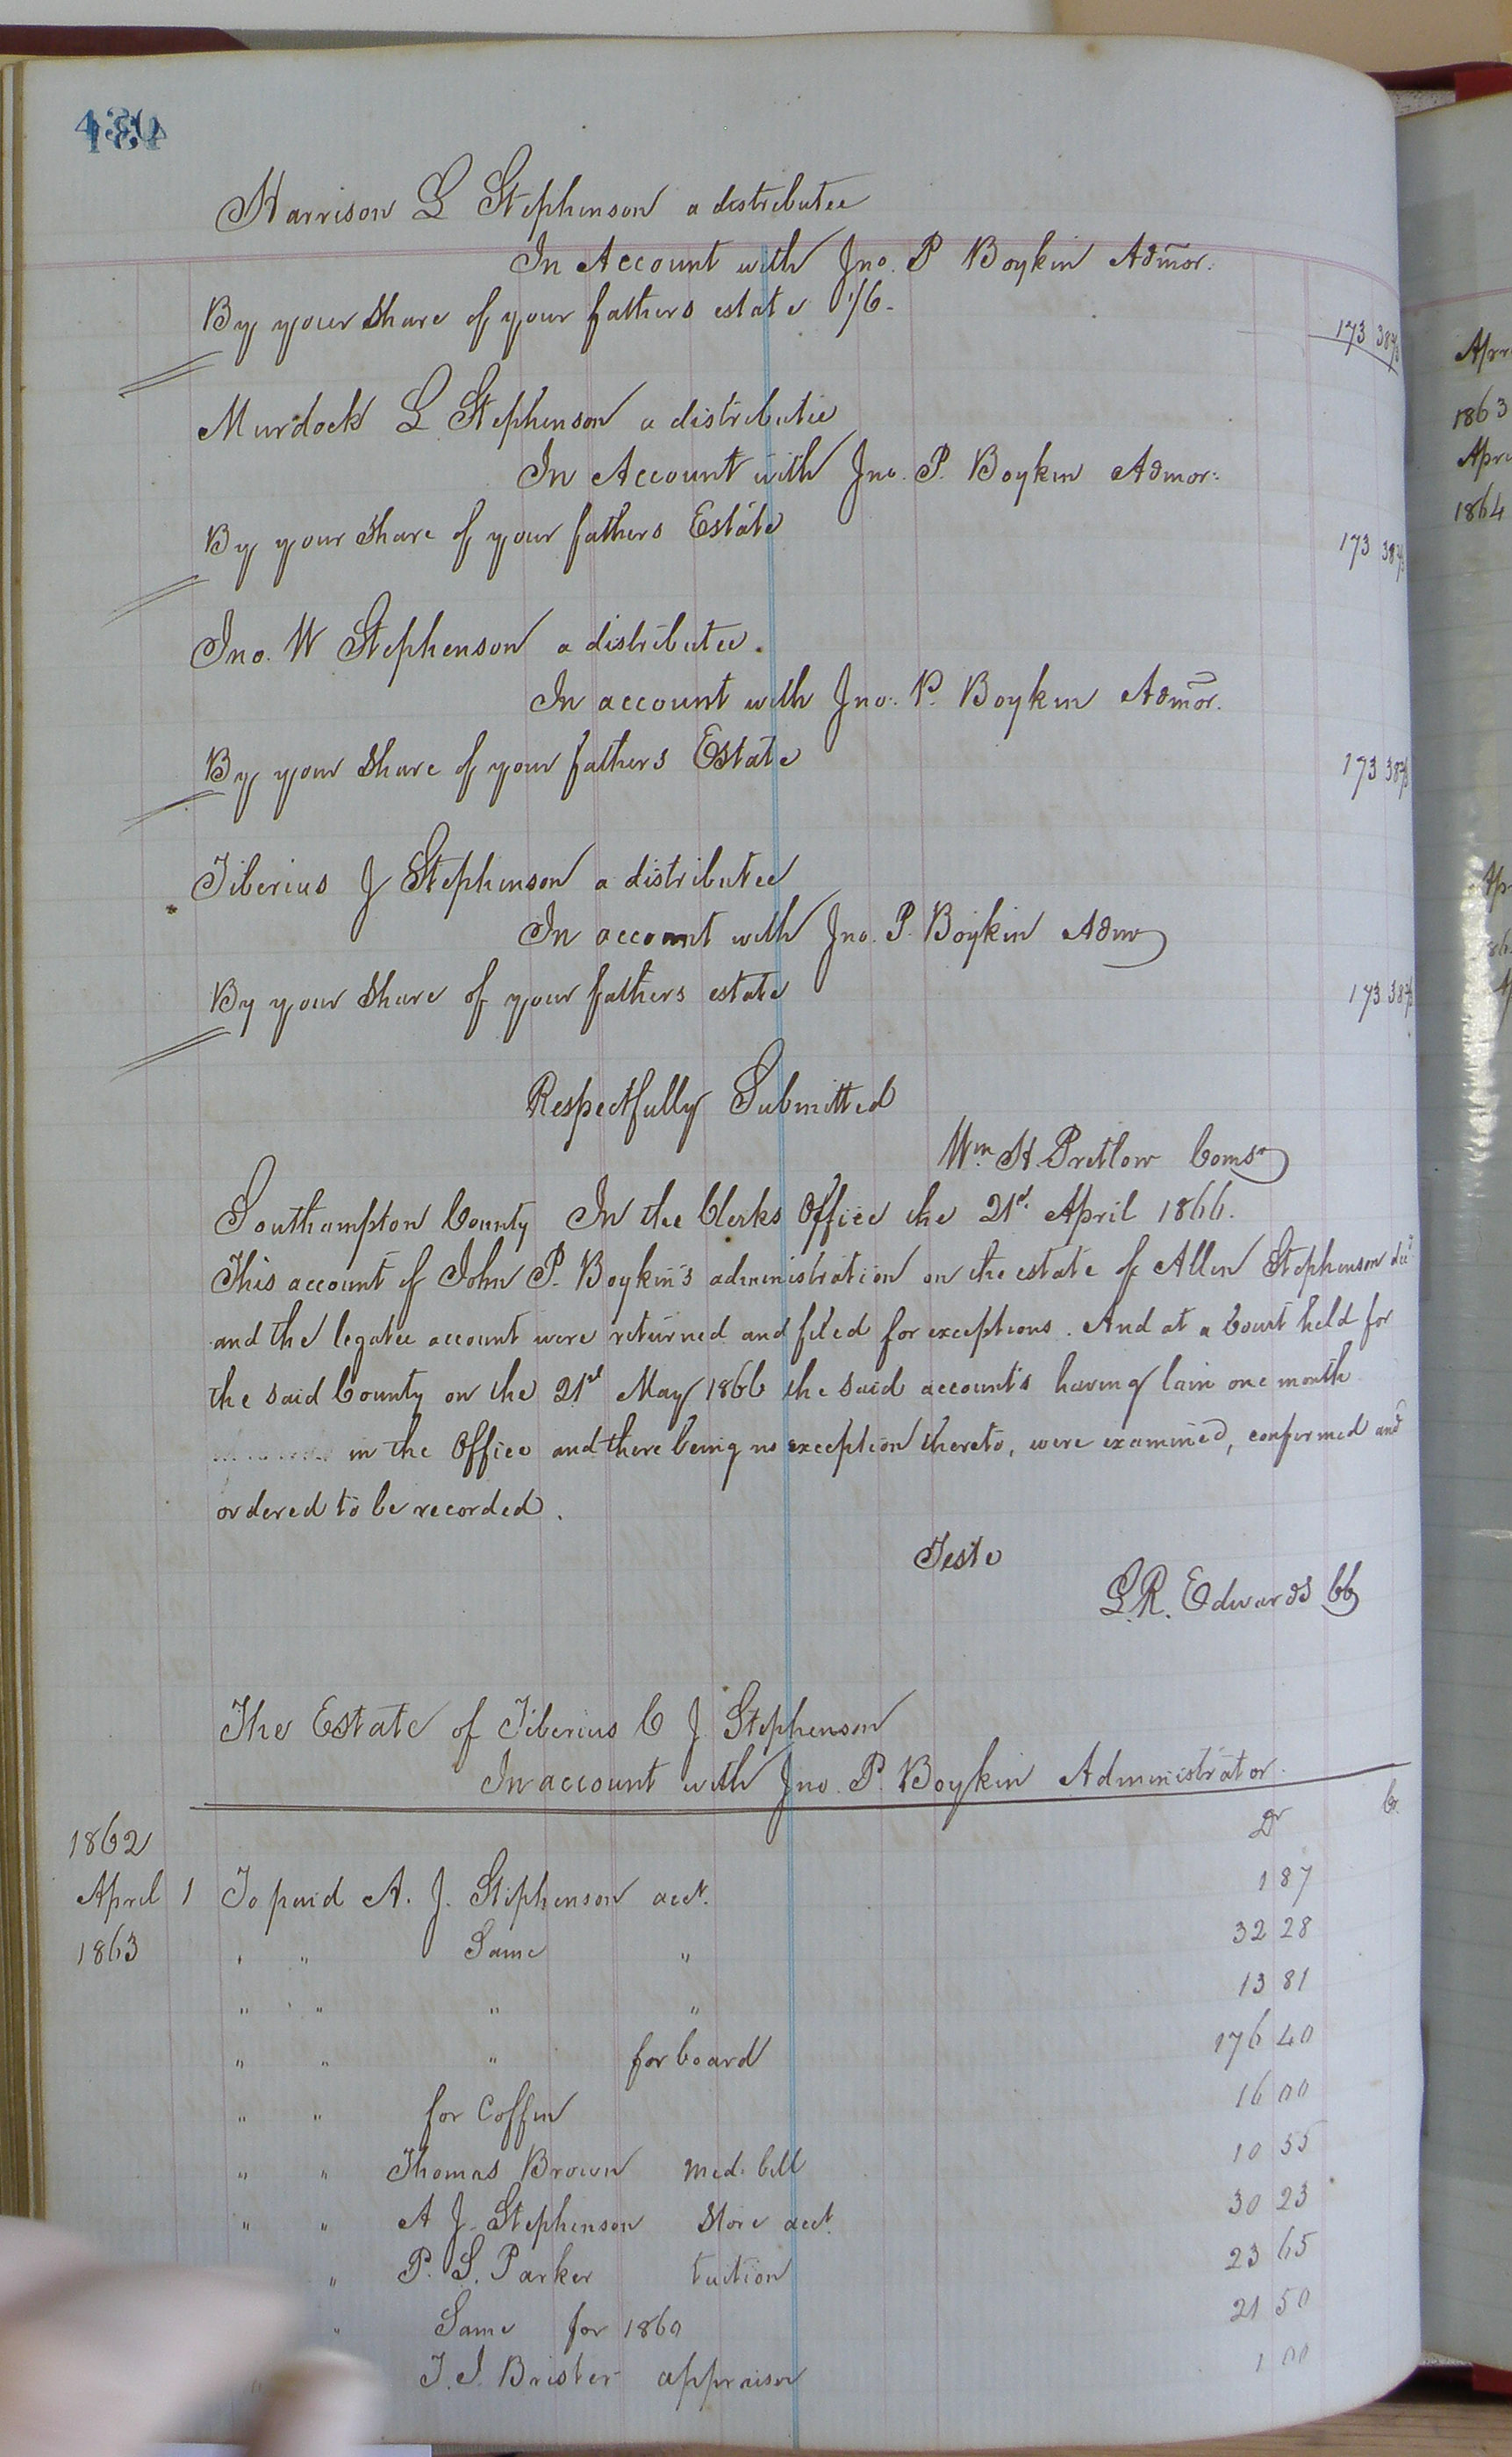 Harrison L Stephenson a distributee
In Account with Jno. P Boykin Admor.
By your share of your fathers estate 1/6 - 173 38
Murdock L Stephenson a distributee
In Account with Jno. P. Boykin Admor:
By your share of your fathers Estate 173 38
Jno. W Stephenson a distributee.
In account with Jno. P. Boykin Admor.
By your share of your fathers Estate 173 38
Tiberius J Stephenson a distributee
In account with Jno. P. Boykin Admr
By your share of your fathers estate 173 38
Respectfully Submitted
Wm. H. Pretlow Comsr
Southampton County In the Clerks Office the 21st April 1866.
This account of John P. Boykin's administration on the estate of Allen Stephenson decd
and the legatee account were returned and filed for exceptions. And at a Court held for
the said County on the 21st May 1866 the said accounts having lain one month
in the Office and there being no exception thereto, were examined, confirmed and
ordered to be recorded.
Teste
L.R. Edwards CC
The Estate of Tiberius C J Stephenson
In account with Jno. P. Boykin Administrator.
1862 Dr Cr.
April 1 To paid A. J. Stephenson acct. 1 87
1863 " " Same " 32 28
" " " " 13 81
" " " for board 176 40
" " for Coffin 16 00
" " Thomas Brown med. bill 10 55
" " A J. Stephenson Store acct. 30 23
" P. S. Parker tuition 23 65
" Same for 1860 21 50
T. J. Brister appraiser 1 00
Apr
1863
Apri
1864